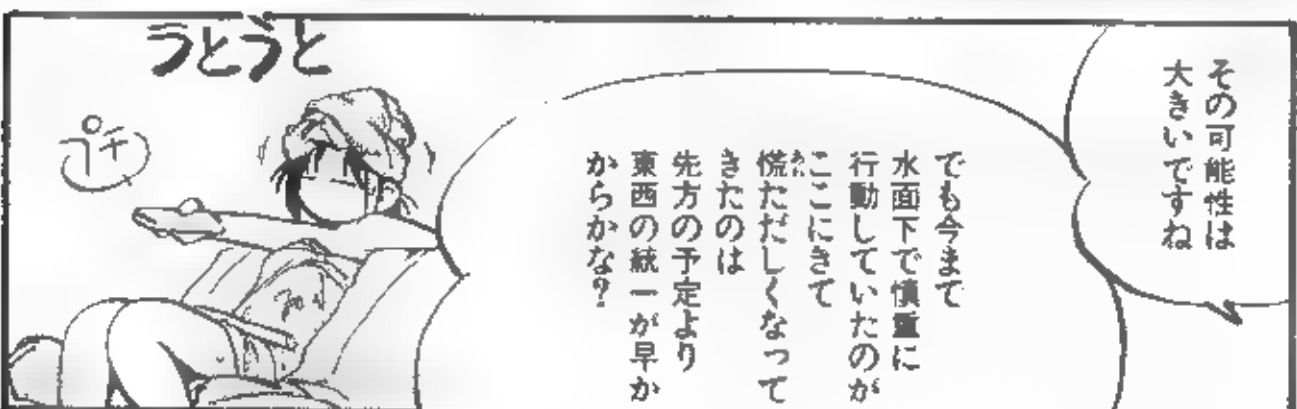 その可能性は
大きいですね
でも今まで
水面下で慎重に
行動していたのが
ここにきて
慌ただしくなって
きたのは
先方の予定より
東西の統一が早か
からかな?
うとうと
プチ